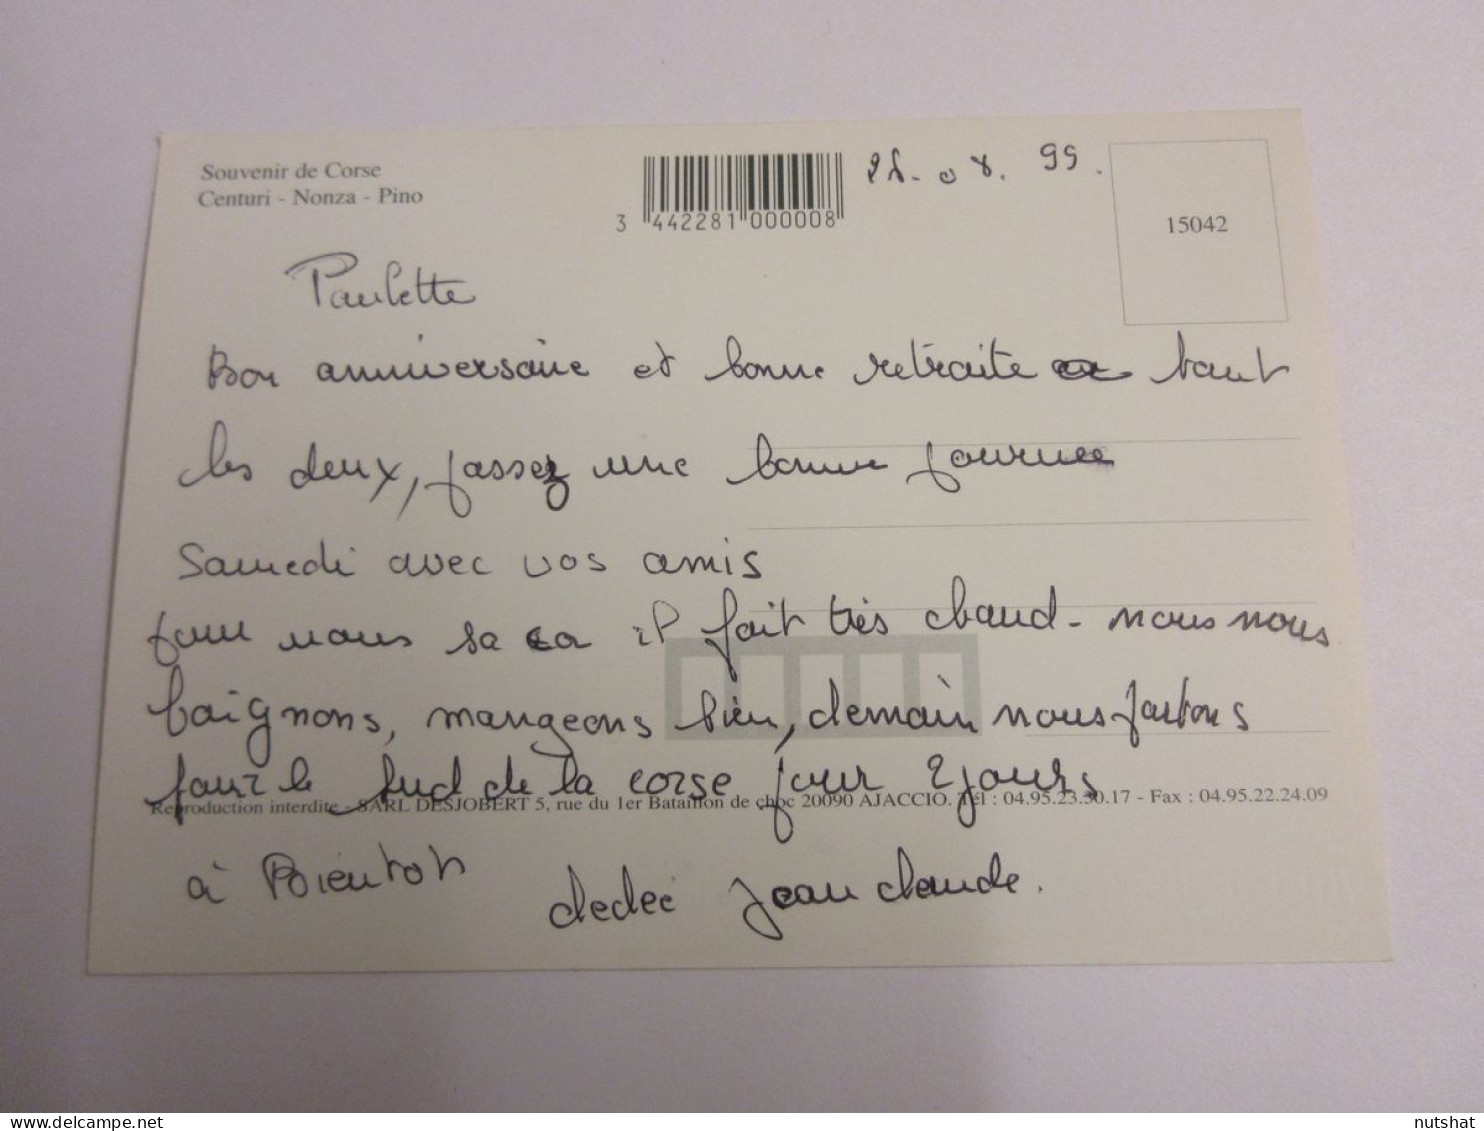 Souvenir de Corse
Centuri - Nonza - Pino
3 442281 000008
08. 99.
15042
Paulette
Bon anniversaire et bonne retraite a tout
les deux, passez une bonne journee
Samedi avec vos amis
pour nous sa ca il fait très chaud - nous nous
baignons, mangeons bien, demain nous partons
pour le sud de la corse pour 2 jours
Reproduction interdite - SARL DESJOBERT 5, rue du 1er Bataillon de choc 20090 AJACCIO. Tél : 04.95.23.30.17 - Fax : 04.95.22.24.09
à Bientot
dedee Jean claude.
nutshat